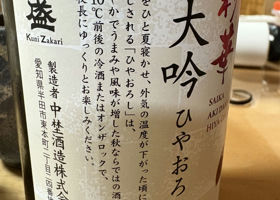 彩華
SAIKA
AKI
HIYA
大吟
ひやおろ
をひと夏寝かせ、外気の温度が下がった頃に
される「ひやおろし」は、
かでうまみや風味が増した秋ならではの酒
10℃前後の冷酒またはオンザロックで、
長にゆっくりとお楽しみください。
製造者 中埜酒造株式会
愛知県半田市東本町二丁目二四番地
盛
Kuni Zakari